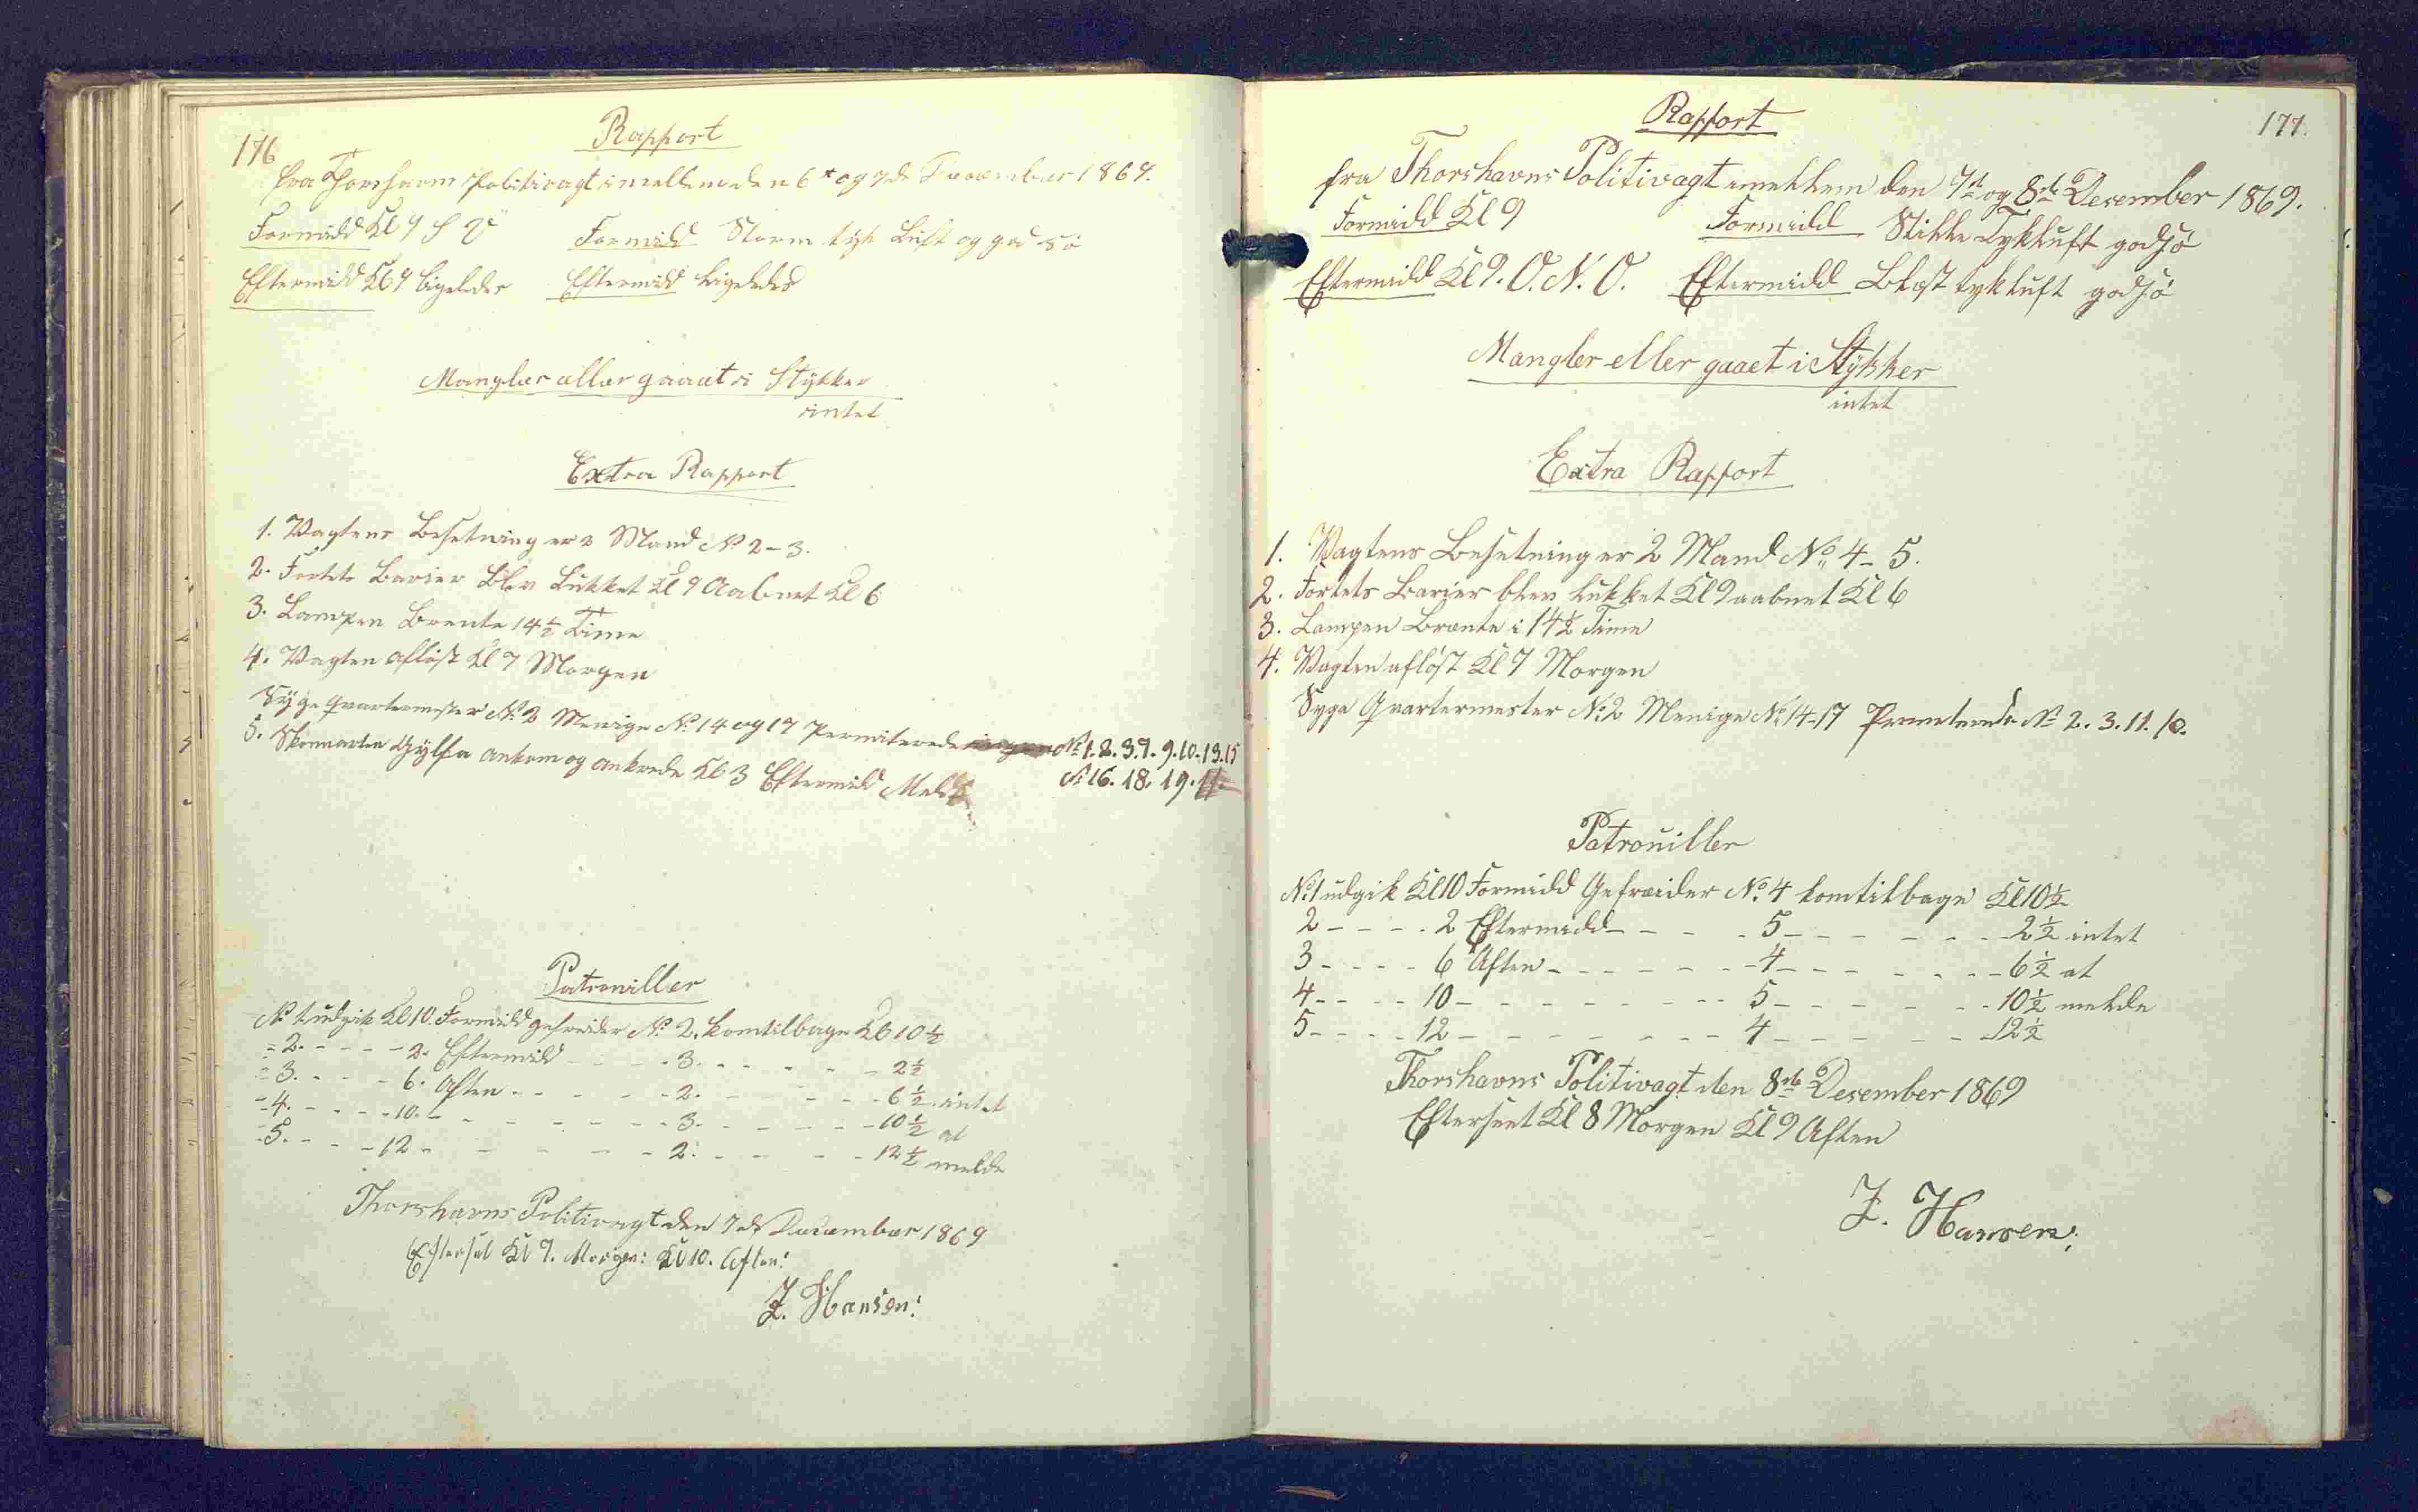 176
Rapport
fra Thorshavns Politivagt imellem den 6te og 7de Decæmber 1869.
Formidd Kl 9 S V Formidd Storm tyk Luft og god Sö
Eftermidd Kl 9 ligeledes Eftermidd ligeledes
Mangler eller gaaet i Stÿkker
intet
Extra Rapport
1. Vagtens Besetning er 2 Mand No 2-3.
2. Fortets Barier Blev Lukket Kl 9 Aabnet Kl 6
3. Lampen Brente 14½ Time
4. Vagten aflöst Kl 7 Morgen
Sÿge Qvartermester No 2 Menige No 14 og 17 Permiterede No 1. 2. 3. 7. 9. 10. 13. 15
No 16. 18. 19.
5. Skonnarten Gÿlfa ankom og ankrede Kl 3 Eftermidd Meldt
Patrouiller
No 1 udgik Kl 10. Formidd gefreider No 2. kom tilbage Kl 10½
- 2. - - - - 2. Eftermidd - - - - 3. - - - - - 2½
- 3. - - - 6. Aften - - - - - 2. - - - - 6½ intet
- 4. - - - - 10. - - - - - - - 3. - - - - - 10½ at
- 5. - - - 12 - - - - - 2. - - - - 12½ melde
Thorshavns Politivagt den 7de Decæmber 1869
Efterset Kl 7. Morgen: Kl 10. Aften:
Z. Hansen:
177.
Rapport
fra Thorshavns Politivagt imellem den 7de og 8de Desember 1869.
Formidd Kl 9 Formidd Stille Tyk Luft god Sö
Eftermidd Kl 9. O. N. O. Eftermidd Blæst tyk Luft god Sö
Mangler eller gaaet i Stÿkker
intet
Extra Rapport
1. Vagtens Besetning er 2 Mand No 4-5.
2. Fortets Barier blev lukket Kl 9 aabnet Kl 6
3. Lampen Brænte i 14½ Time
4. Vagten aflöst Kl 7 Morgen
Syge Qvartermester No 2 Menige No 14-17 No 2. 3. 11. 10.
Patrouiller
No 1 udgik Kl 10 Formidd Gefreider No 4 kom tilbage Kl 10½
2 - - - - 2 Eftermidd - - - - 5 - - - - - - 2½ intet
3 - - - - 6 Aften - - - - - - 4 - - - - - - 6½ at
4 - - - - 10 - - - - - - - - 5 - - - - - - 10½ melde
5 - - - - 12 - - - - - - - - 4 - - - - - 12½
Thorshavns Politivagt den 8de Desember 1869
Efterseet Kl 8 Morgen Kl 9 Aften
Z. Hansen: